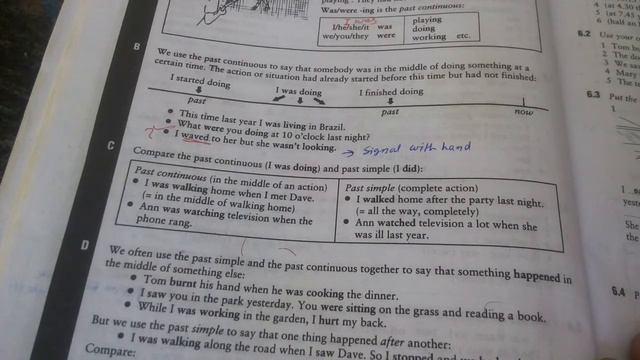 playing . They had
Was/were -ing is the past continuous:
I was
I/he/she/it was
we/you/they were
playing
doing
working etc.
B
We use the past continuous to say that somebody was in the middle of doing something at a
certain time. The action or situation had already started before this time but had not finished:
I started doing I was doing I finished doing
past past now
• This time last year I was living in Brazil.
• What were you doing at 10 o'clock last night?
• I waved to her but she wasn't looking. → signal with hand
C
Compare the past continuous (I was doing) and past simple (I did):
Past continuous (in the middle of an action)
• I was walking home when I met Dave.
(= in the middle of walking home)
• Ann was watching television when the
phone rang.
Past simple (complete action)
• I walked home after the party last night.
(= all the way, completely)
• Ann watched television a lot when she
was ill last year.
D
We often use the past simple and the past continuous together to say that something happened in
the middle of something else:
• Tom burnt his hand when he was cooking the dinner.
• I saw you in the park yesterday. You were sitting on the grass and reading a book.
• While I was working in the garden, I hurt my back.
But we use the past simple to say that one thing happened after another:
• I was walking along the road when I saw Dave. So I stopped and
Compare:
4 (at 4.30
5 (at 7.4
6 (half an
6.2 Use your o
1 Tom b
2 The do
3 We sa
4 Mary
5 The t
6.3 Put the
1
I
yeste
She
the
6.4 P